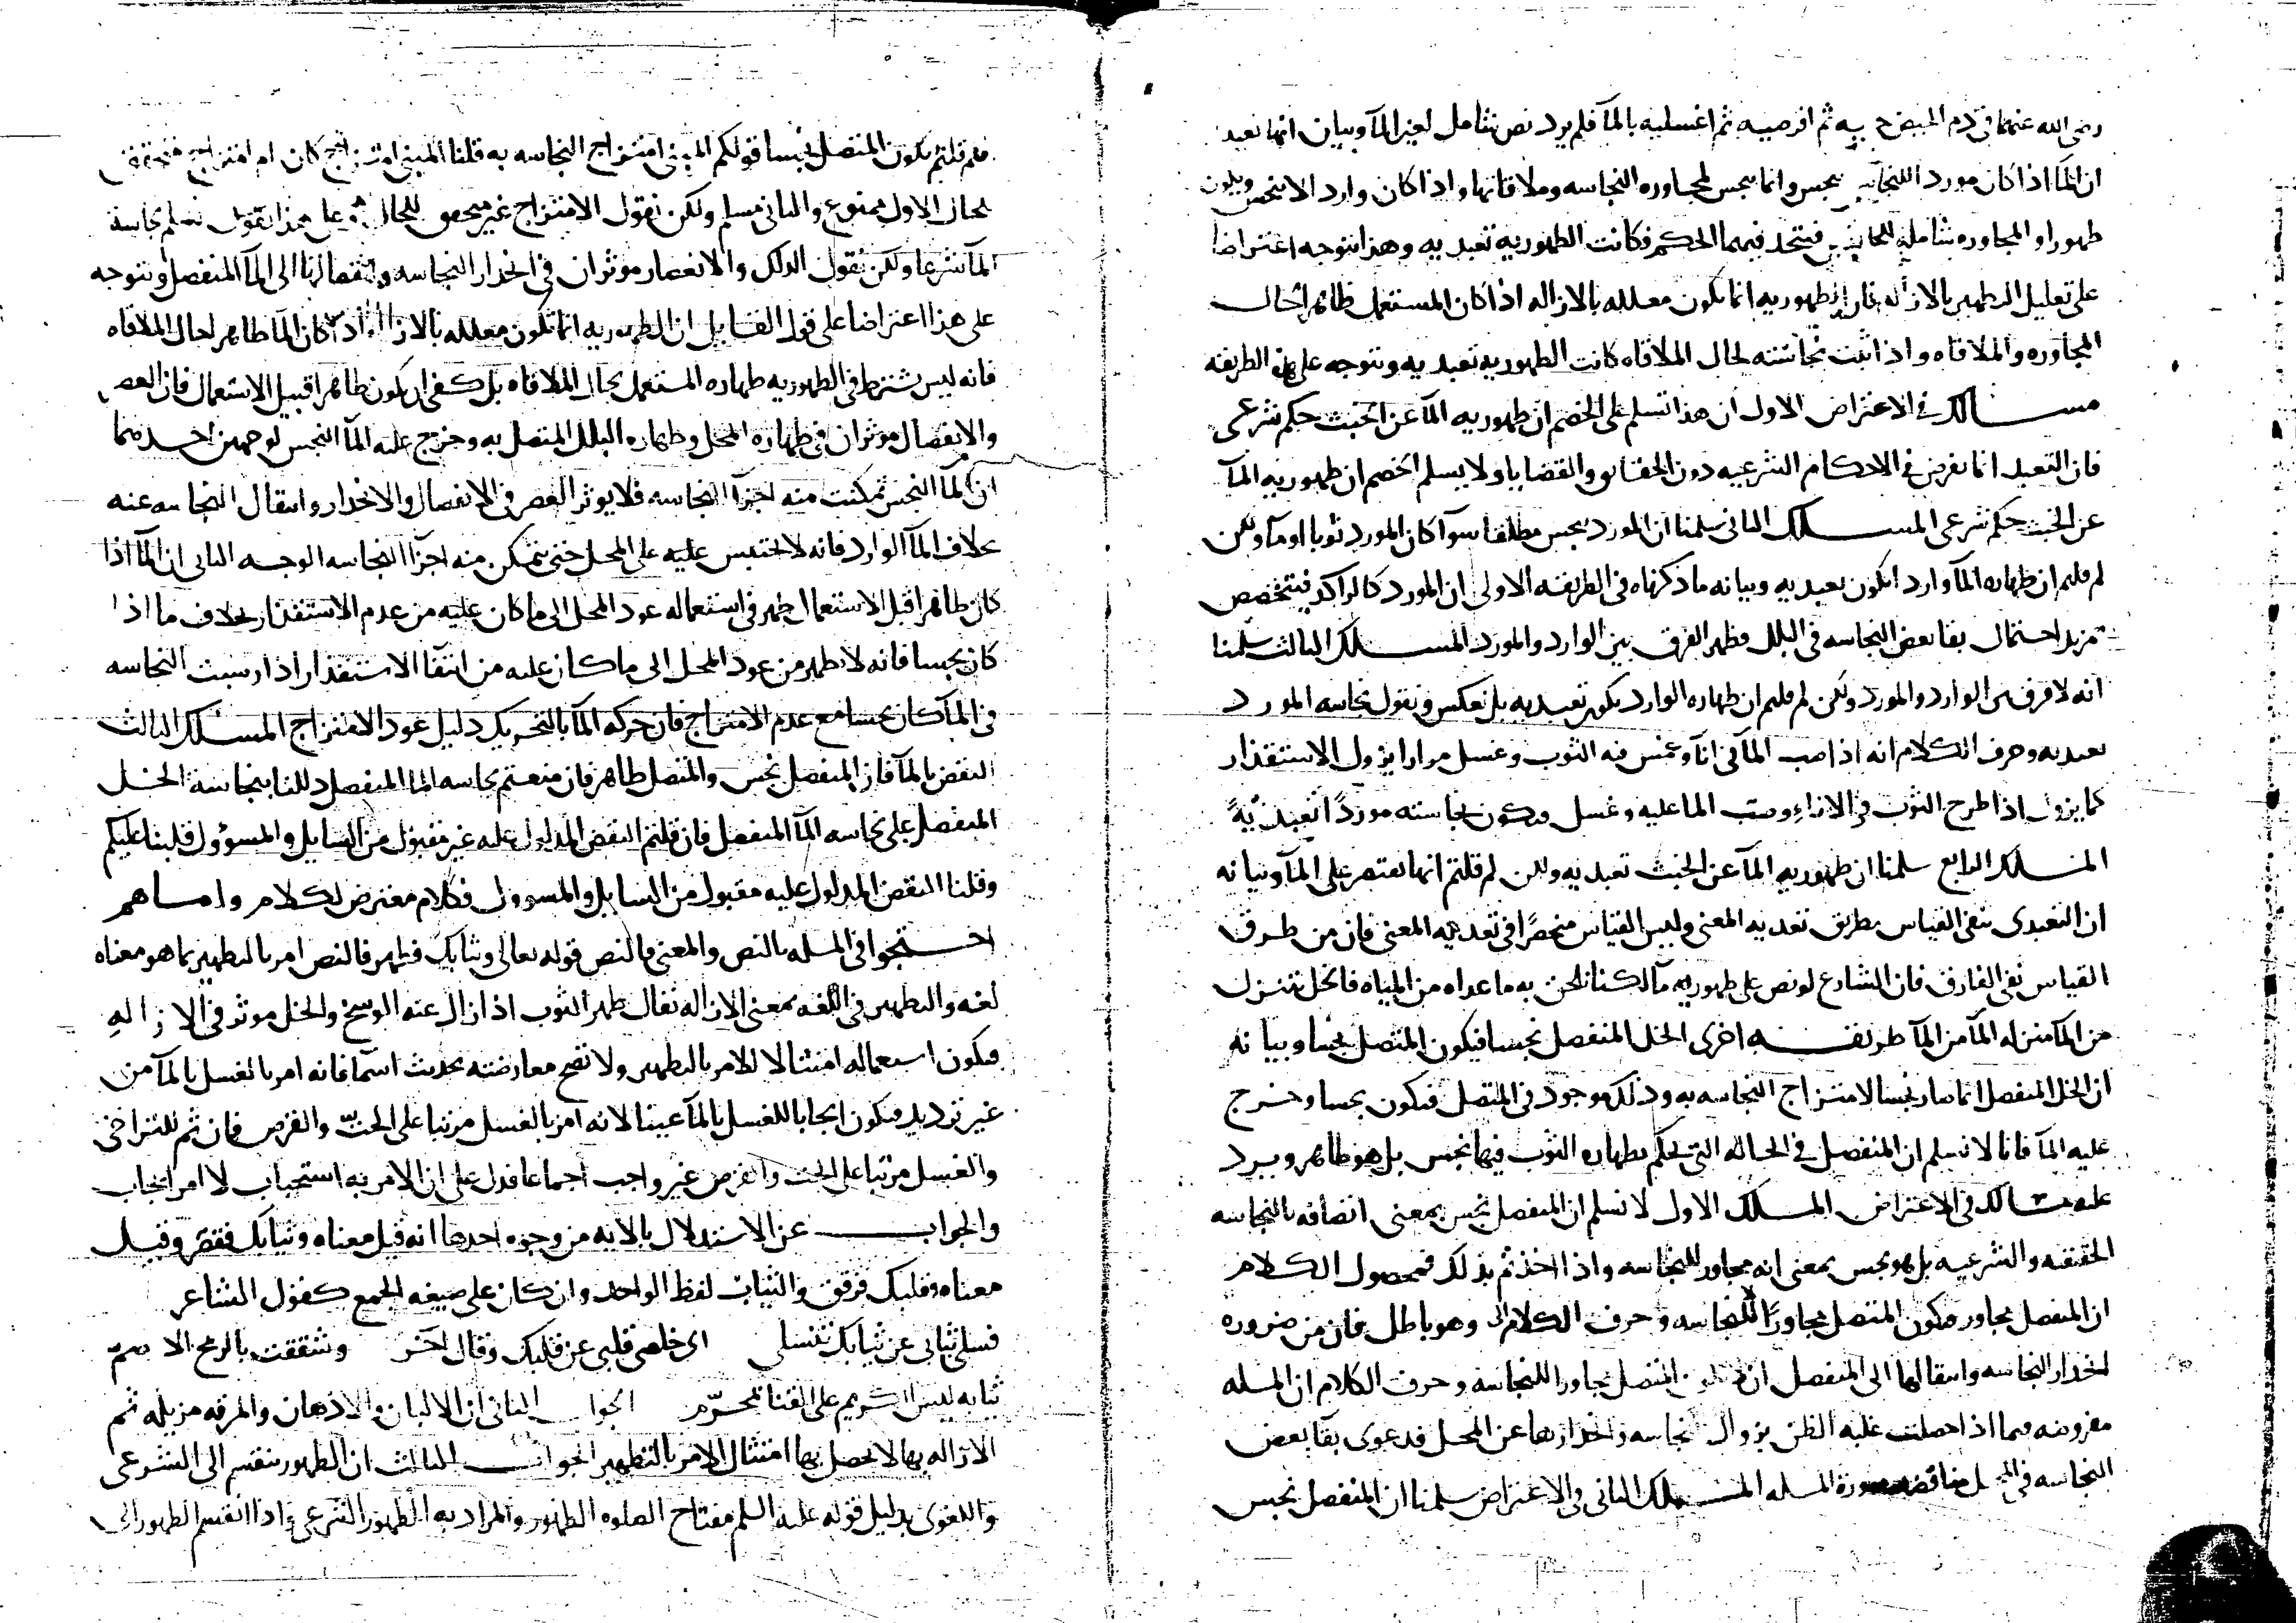 رضى الله عنهما فى دم الحيض حتيه ثم اقرصيه ثم اغسليه بالمآ فلم يرد نص شامل لغير المآ وبيان انها تعبد
ان المآ اذا كان موردا للنجاسه ينجس وانما ينجس لمجاوره النجاسه وملاقاتها واذا كان واردا لا ينجس ويكون
طهورا والمجاوره شامله للجانبين فيتحد فيهما الحكم فكانت الطهوريه تعبديه وهذا يتوجه اعتراضا
على تعليل التطهير بالازاله فان الطهوريه انما يكون معلله بالازاله اذا كان المستعمل طاهرا حال
المجاوره والملاقاه واذا ثبت نجاسته لحال الملاقاه كانت الطهوريه تعبديه ويتوجه على هذه الطريقه
مسالك فى الاعتراض الاول ان هذا تسلم على الخصم ان طهوريه المآ عن الخبث حكم شرعى
فان التعبد انما يفرض فى الاحكام الشرعيه دون الحقائق والقضايا ولا يسلم الخصم ان طهوريه المآ
عن الخبث حكم شرعى المسلك الثانى سلمنا ان المورد ينجس مطلقا سوآ كان المورد ثوبا او مآ ولكن
لم قلتم ان طهاره المآ واردا يكون تعبديه وبيانه ما ذكرناه فى الطريقه الاولى ان المورد كالراكد فيتخصص
بمزيد احتمال بقا بعض النجاسه فى البلل فظهر الفرق بين الوارد والمورد المسلك الثالث سلمنا
انه لا فرق بين الوارد والمورد ولكن لم قلتم ان طهاره الوارد يكون تعبديه بل نعكس ونقول نجاسه المورد
تعبديه وحرف الكلام انه اذا صب المآ فى انآ وغمس فيه الثوب وغسل مرارا يزول الاستقذار
كما يزول اذا طرح الثوب فى الاناء وصب الما عليه وغسل فيكون نجاسته موردًا تعبديّهً
المسلك الرابع سلمنا ان طهوريه المآ عن الخبث تعبديه ولكن لم قلتم انها تقتصر على المآ وبيانه
ان التعبدى ينفى القياس بطريق تعديه المعنى وليس القياس منحصرًا فى تعديه المعنى فان من طرق
القياس نفى الفارق فان الشارع لو نص على طهوريه مآ لكنا نلحق به ما عداه من المياه فالخل يتنزل
من المآ منزله المآ من المآ طريقه اخرى الخل المنفصل نجس فيكون المتصل نجسا وبيانه
ان الخل المنفصل انما صار نجسا لامتزاج النجاسه به وذلك موجود فى المتصل فيكون نجسا وخرج
عليه المآ فانا لا نسلم ان المنفصل فى الحاله التى يحكم بطهاره الثوب فيها نجس بل هو طاهر ويرد
عليه مسالك فى الاعتراض المسلك الاول لا نسلم ان المنفصل نجس بمعنى اتصافه بالنجاسه
الحقيقيه والشرعيه بل هو نجس بمعنى انه مجاور للنجاسه واذا اخذتم بذلك فمحصول الكلام
ان المنفصل مجاور فيكون المتصل مجاورًا للنجاسه وحرف الكلام وهو باطل فان من ضروره
انحدار النجاسه وانتقالها الى المنفصل ان لا يكون المتصل مجاورا للنجاسه وحرف الكلام ان المسله
مفروضه فيما اذا حصلت غلبه الظن بزوال النجاسه وانحدارها عن المحل فدعوى بقآ بعض
النجاسه فى المحل مناقضه صورة المسله المسلك الثانى فى الاعتراض سلمنا ان المنفصل نجس
فلم قلتم يكون المتصل نجسا قولكم المعنى امتزاج النجاسه به قلنا المعنى امتزاج كان ام امتزاج متحقق
للحال الاول ممنوع والثانى مسلم ولكن نقول الامتزاج غير متحقق للحال وعلى هذا نقول نسلم نجاسة
المآ شرعا ولكن نقول الدلك والانعصار موثران فى انحدار النجاسه وانتقالها الى المآ المنفصل ويتوجه
على هذا اعتراضا على قول القايل ان الطهوريه انما تكون معلله بالازاله اذا كان المآ طاهرا حال الملاقاه
فانه ليس يشترط فى الطهوريه طهاره المستعمل بحال الملاقاه بل يكفى ان يكون طاهرا قبيل الاستعمال فان العصر
والانفصال موثران فى طهاره المحل وطهاره البلل المتصل به وخرج عليه المآ النجس لوجهين احدهما
ان المآ النجس تمكنت منه اجزآ النجاسه فلا يوثر العصر فى الانفصال والانحدار وانتقال النجاسه عنه
بخلاف المآ الوارد فانه لا يحتبس عليه على المحل حتى تتمكن منه اجزآ النجاسه الوجه الثانى ان المآ اذا
كان طاهرا قبل الاستعمال ظهر فى استعماله عود المحل الى ما كان عليه من عدم الاستقذار بخلاف ما اذا
كان نجسا فانه لا يظهر من عود المحل الى ما كان عليه من انتفآ الاستقذار اذا رسبت النجاسه
فى المآ كان نجسا مع عدم الامتزاج فان حركه المآ بالتحريك دليل عود الامتزاج المسلك الثالث
النقض بالمآ فان المنفصل نجس والمتصل طاهر فان منعتم نجاسه الما المنفصل دللنا بنجاسة الخل
المنفصل على نجاسه المآ المنفصل فان قلتم النقض المدلول عليه غير مقبول من السايل والمسؤول قلبنا عليكم
وقلنا النقض المدلول عليه مقبول من السايل والمسوول فكلام معترض لكلام واما هم
احتجوا فى المسله بالنص والمعنى فالنص قوله تعالى وثيابك فطهر فالنص امر بالتطهير بما هو معناه
لغه والتطهير فى اللغه بمعنى الازاله يقال طهر الثوب اذا زال عنه الوسخ والخل موثر فى الازاله
فيكون استعماله امتثالا للامر بالتطهير ولا تصح معارضته بحديث اسمآ فانه امر بالغسل بالمآ من
غير ترديد فيكون ايجابا للغسل بالمآ عينا لانه امر بالغسل مرتبا على الحتّ والقرص فان ثم للتراخى
والغسل مرتبا على الحت والقرص غير واجب اجماعا فدل على ان الامر به استحباب لا امر ايجاب
والجواب عن الاستدلال بالايه من وجوه احدها انه قيل معناه وثيابك فقصر وقيل
معناه وقلبك فرقق والثياب لفظ الواحد وان كان على صيغه الجمع كقول الشاعر
فسلى ثيابى عن ثيابك تنسلى اى خلصى قلبى عن قلبك وقال آخر وشققت بالرمح الاصم
ثيابه ليس الكريم على القنا بمحرّم الجواب الثانى ان الالبان والادهان والمرقه مزيله ثم
الازاله بها لا يحصل بها امتثال الامر بالتطهير الجواب الثالث ان الطهور ينقسم الى الشرعى
واللغوى بدليل قوله عليه السلم مفتاح الصلوه الطهور والمراد به الطهور الشرعى واذا انقسم الطهور الى